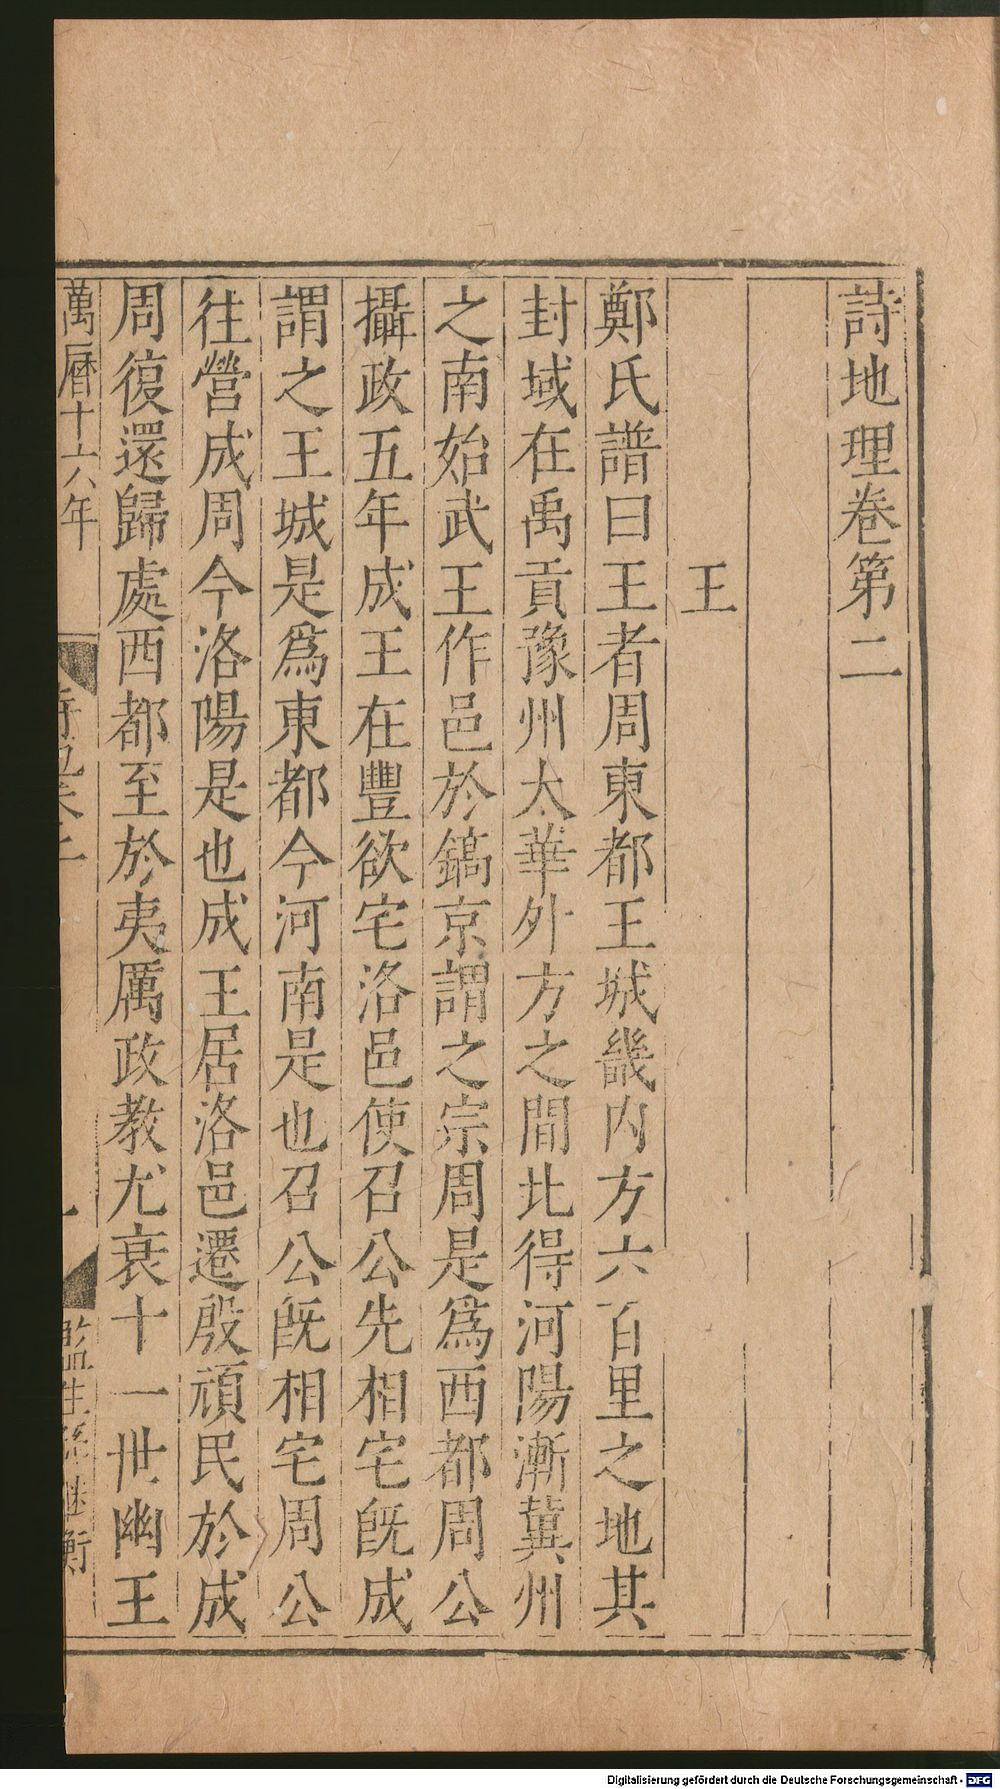 詩地理卷第二
王
鄭氏譜曰王者周東都王城畿内方六百里之地其
封域在禹貢豫州太華外方之間北得河陽漸冀州
之南始武王作邑於鎬京謂之宗周是爲西都周公
攝政五年成王在豐欲宅洛邑使召公先相宅旣成
謂之王城是爲東都今河南是也召公旣相宅周公
往營成周今洛陽是也成王居洛邑遷殷頑民於成
周復還歸處西都至於夷厲政教尤衰十一世幽王
萬曆十六年
監生孫継衡
Digitalisierung gefördert durch die Deutsche Forschungsgemeinschaft - DFG